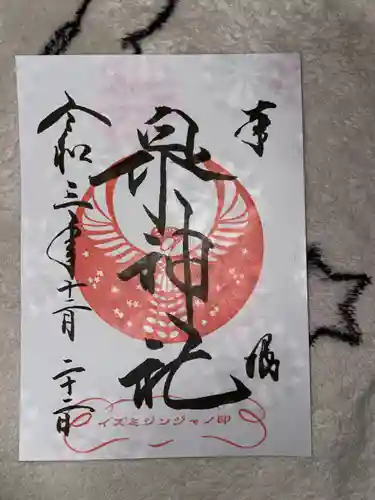 奉拝
泉神社
令和三年十二月二十二日
イズミジンジャノ印